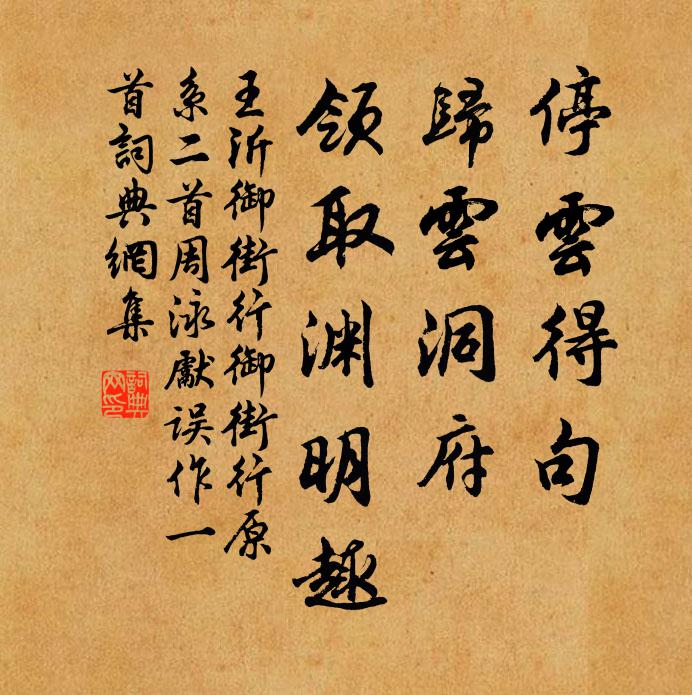 停雲得句
歸雲洞府
領取渊明趣
王沂御街行御街行原
系二首周泳獻误作一
首詞典網集
詞典
网印